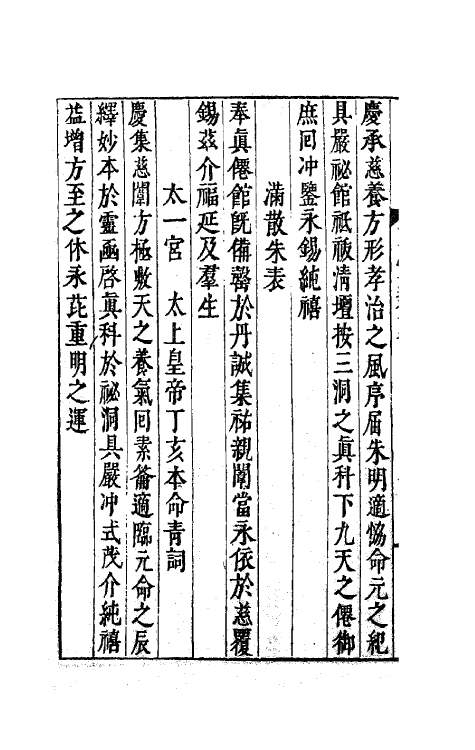 慶承慈養方形孝治之風序屆朱明適恊命元之紀
具嚴祕館祗祓淸壇按三洞之眞科下九天之僊御
庶回冲鑒永錫純禧
滿散朱表
奉眞僊館旣備罄於丹誠集祐親闈當永依於慈覆
錫茲介福延及羣生
太一宮　太上皇帝丁亥本命青詞
慶集慈闈方極敷天之養氣回素籥適臨元命之辰
繹妙本於靈凾啓眞科於祕洞具嚴冲式茂介純禧
益增方至之休永芘重明之運